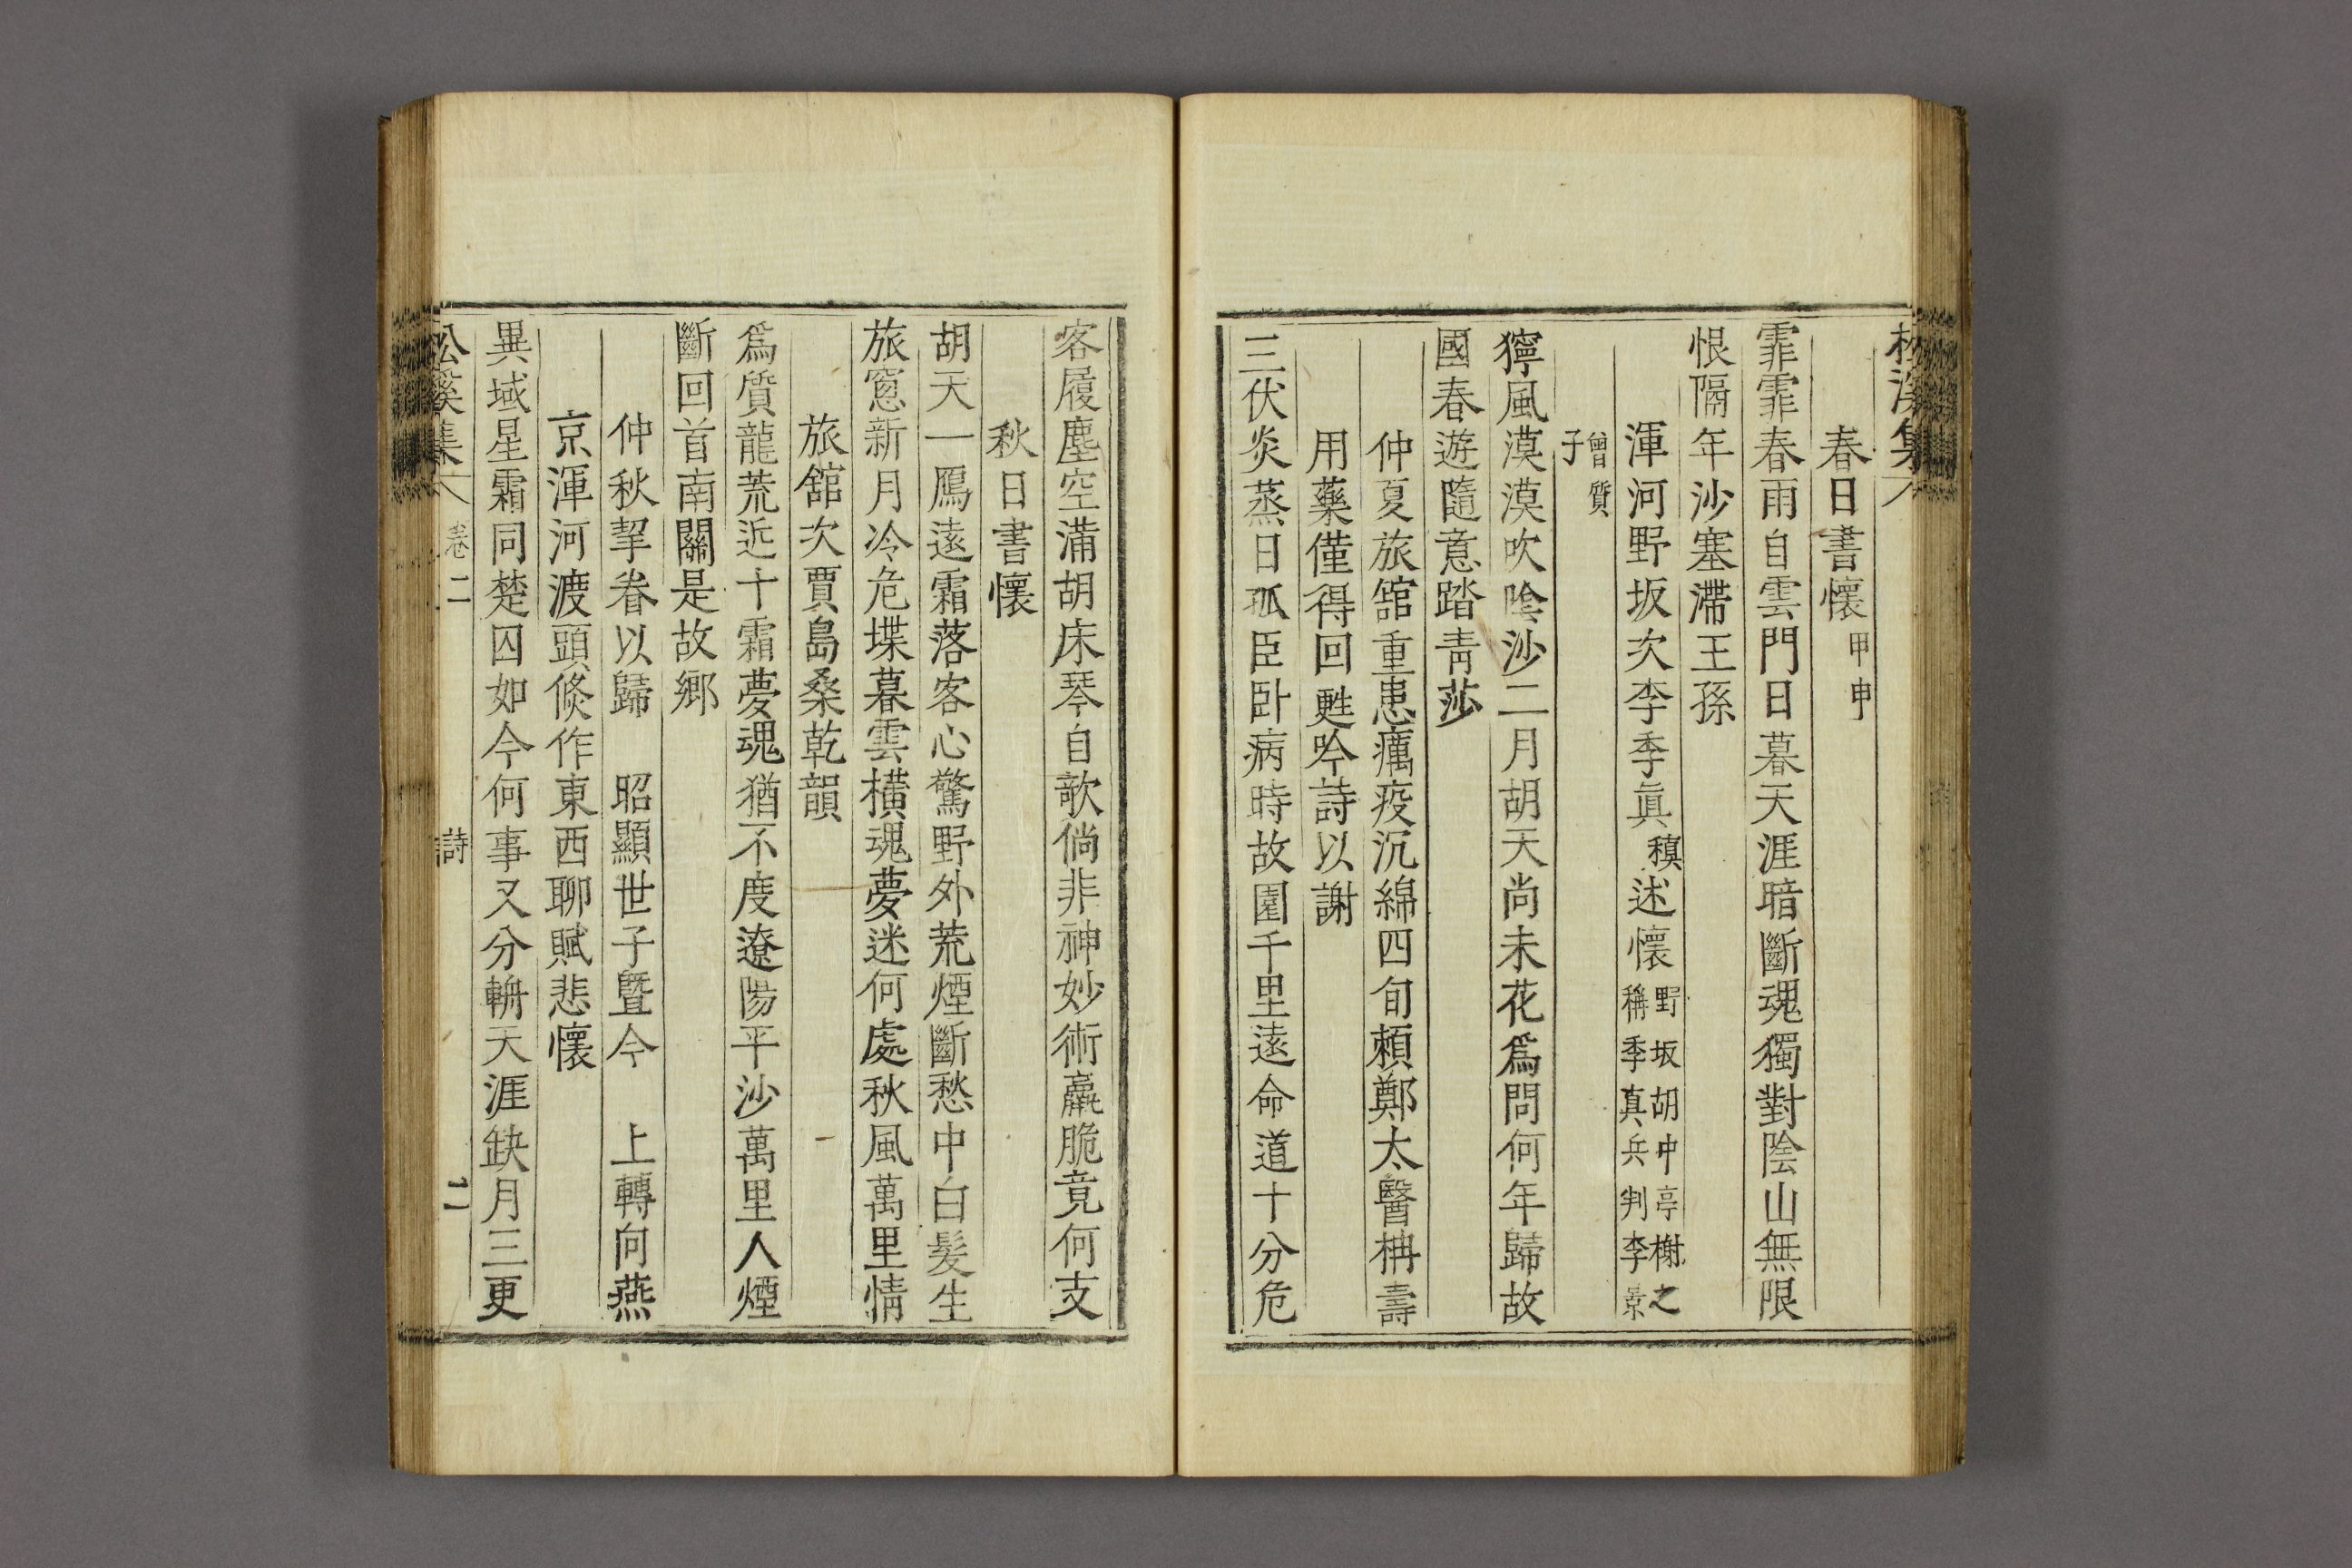 松溪集
春日書懷 甲申
霏霏春雨自雲門日暮天涯暗斷魂獨對陰山無限
恨隔年沙塞滯王孫
渾河野坂次李季眞𥠧述懷 野坂胡中亭榭之
稱季真兵判李景
曾質
子
獰風漠漠吹陰沙二月胡天尚未花爲問何年歸故
國春遊隨意踏靑莎
仲夏旅舘重患癘疫沉綿四旬賴鄭太醫柟壽
用藥僅得回甦吟詩以謝
三伏炎蒸日孤臣卧病時故園千里遠命道十分危
客履塵空滿胡床琴自歌倘非神妙術羸脆竟何支
秋日書懷
胡天一鴈遠霜落客心驚野外荒煙斷愁中白髮生
旅窓新月冷危堞暮雲橫魂夢迷何處秋風萬里情
旅舘次賈島桑乾韻
爲質龍荒近十霜夢魂猶不度遼陽平沙萬里人煙
斷回首南關是故鄉
仲秋挈眷以歸 昭顯世子曁今 上轉向燕
京渾河渡頭倐作東西聊賦悲懷
異域星霜同楚囚如今何事又分輈天涯缺月三更
松溪集 卷二 詩 二